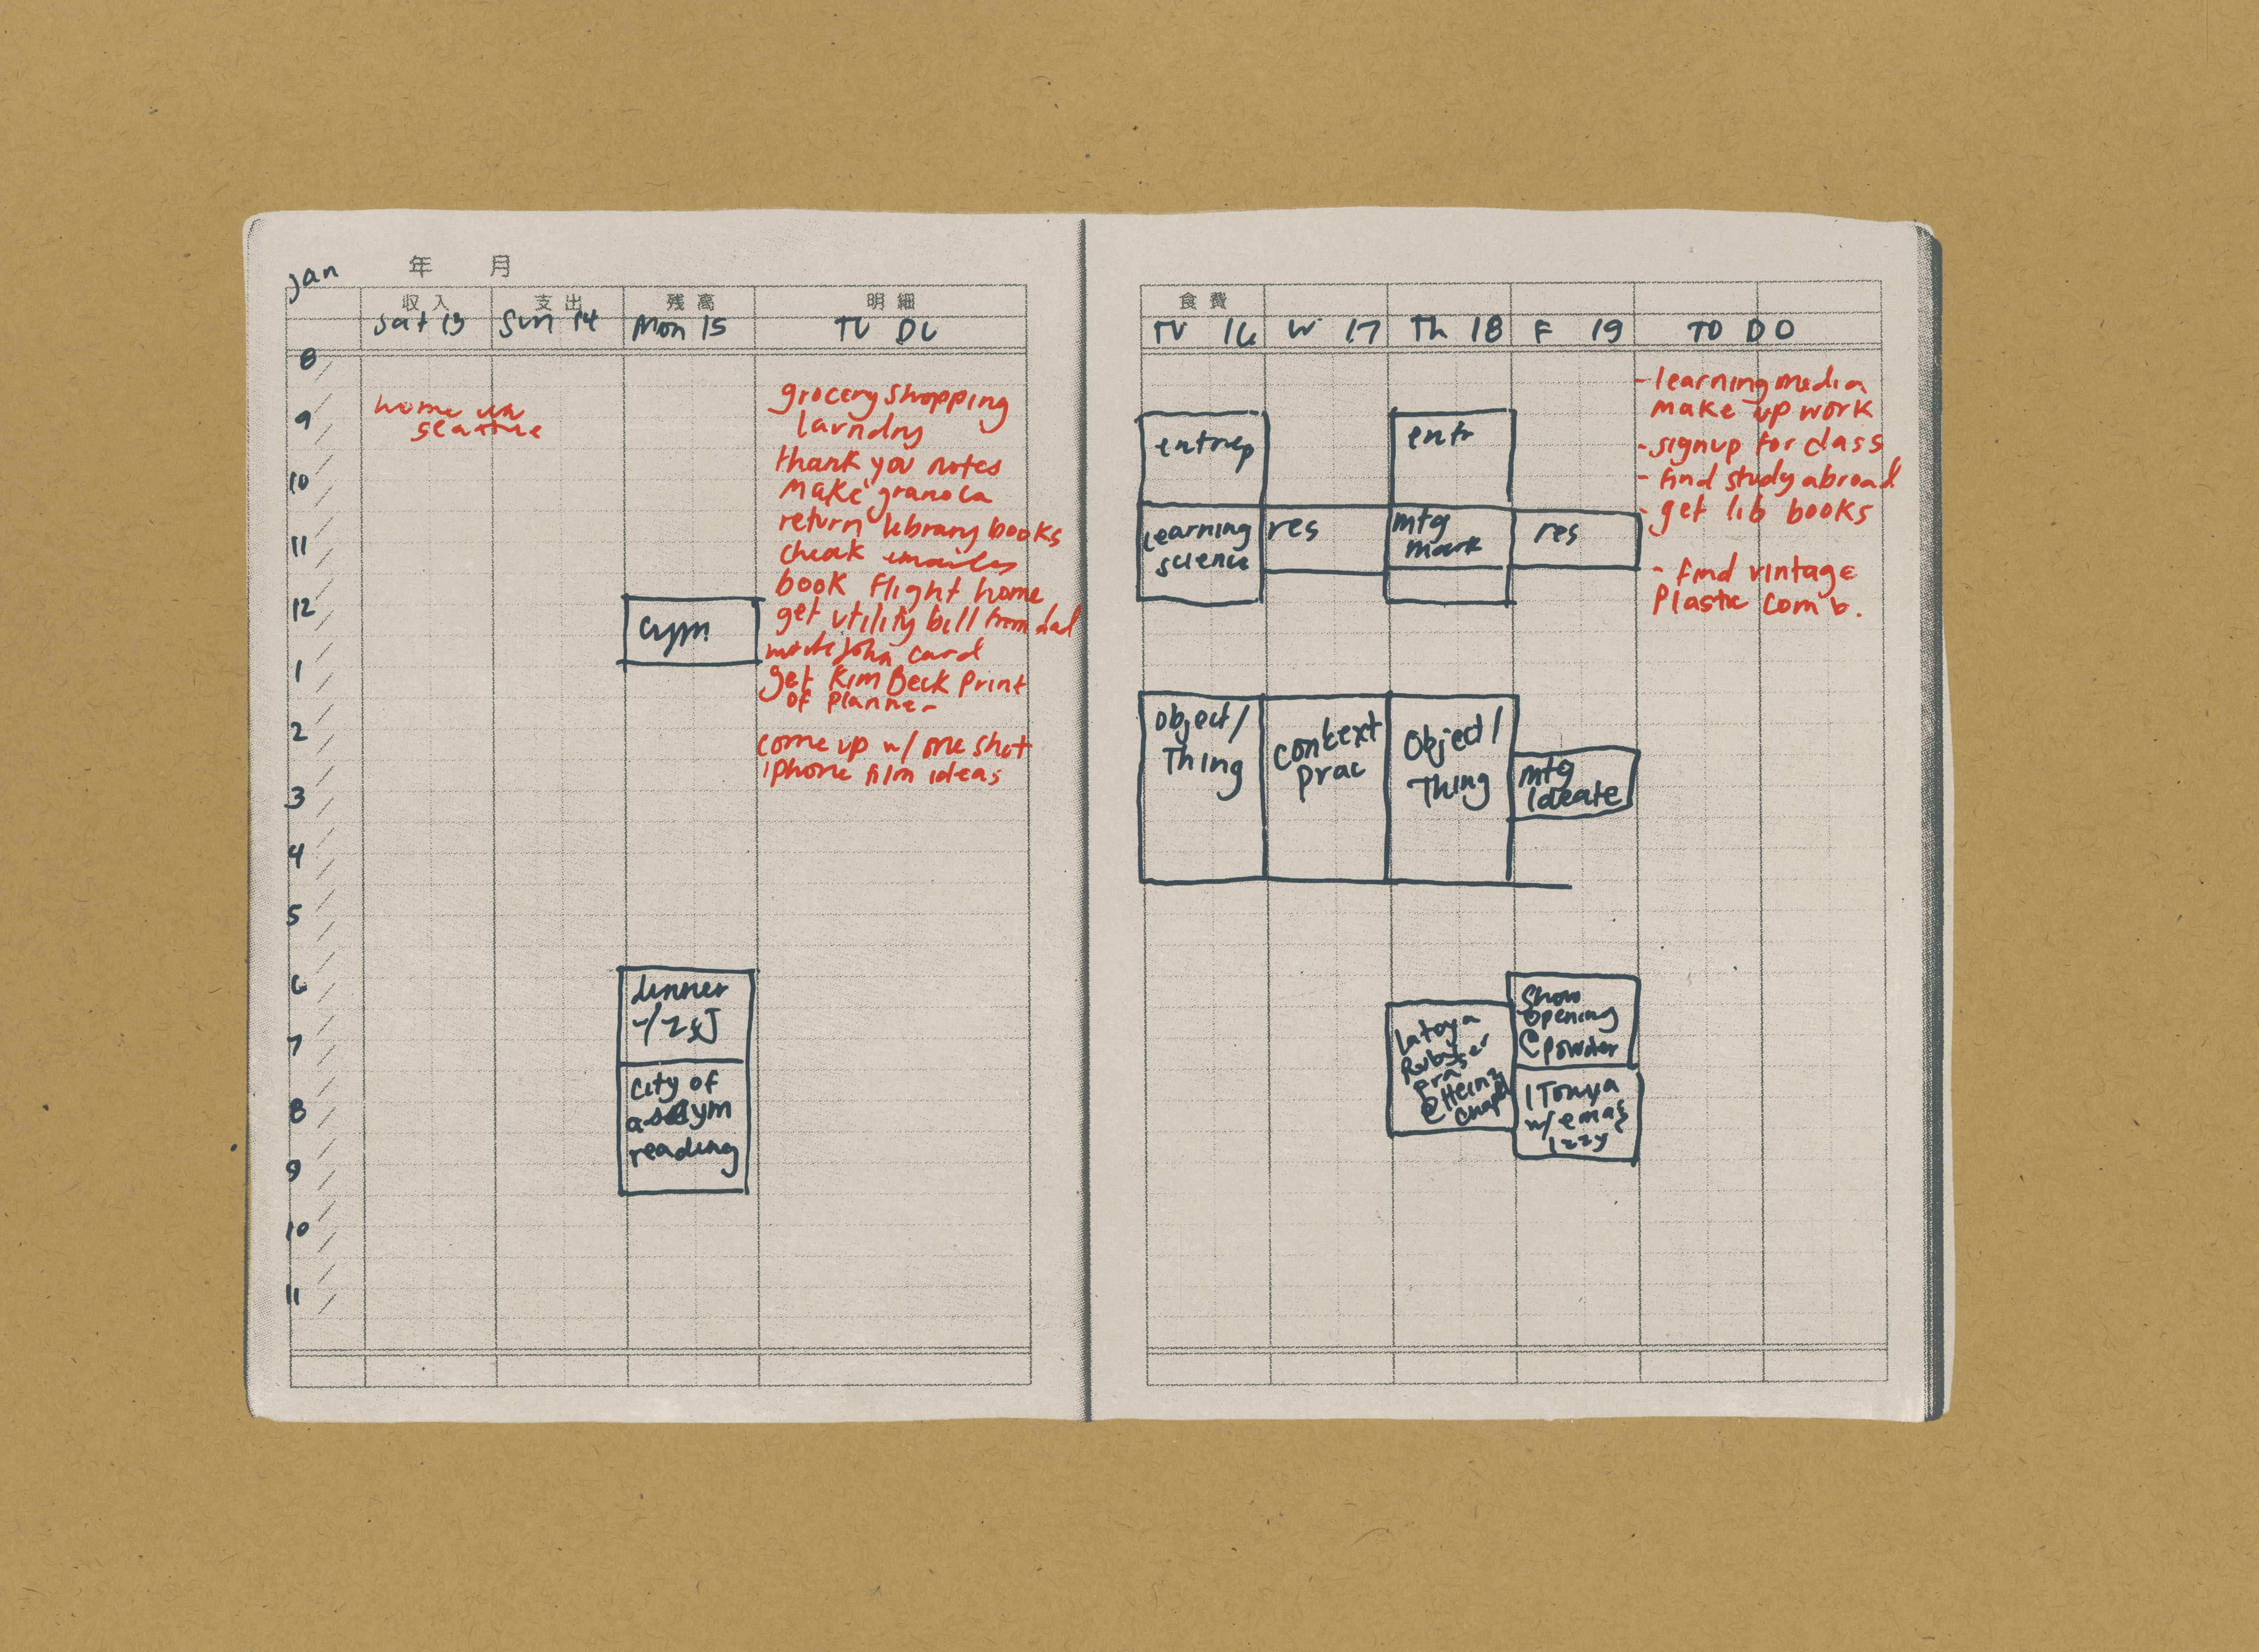 Jan 年 月
収入 支出 残高 明細
Sat 13 Sun 14 Mon 15 TO DO
8
9
10
11
12
1
2
3
4
5
6
7
8
9
10
11
home
seattle
gym
dinner
w/ Z & J
city of
asylum
reading
grocery shopping
laundry
thank you notes
make granola
return library books
check emails
book flight home
get utility bill from dad
write John card
get Kim Beck print
of planner
come up w/ one shot
iphone film ideas
食費
TU 16 W 17 Th 18 F 19 TO DO
entrep
learning
science
object/
Thing
res
context
prac
entr
mtg
mark
object/
Thing
Latoya
Ruby
Fraser
@ Heinz
chapel
res
mtg
ideate
show
opening
@ powder
I Tonya
w/ ema &
izzy
- learning media
make up work
- signup for class
- find study abroad
- get lib books
- find vintage
plastic comb.